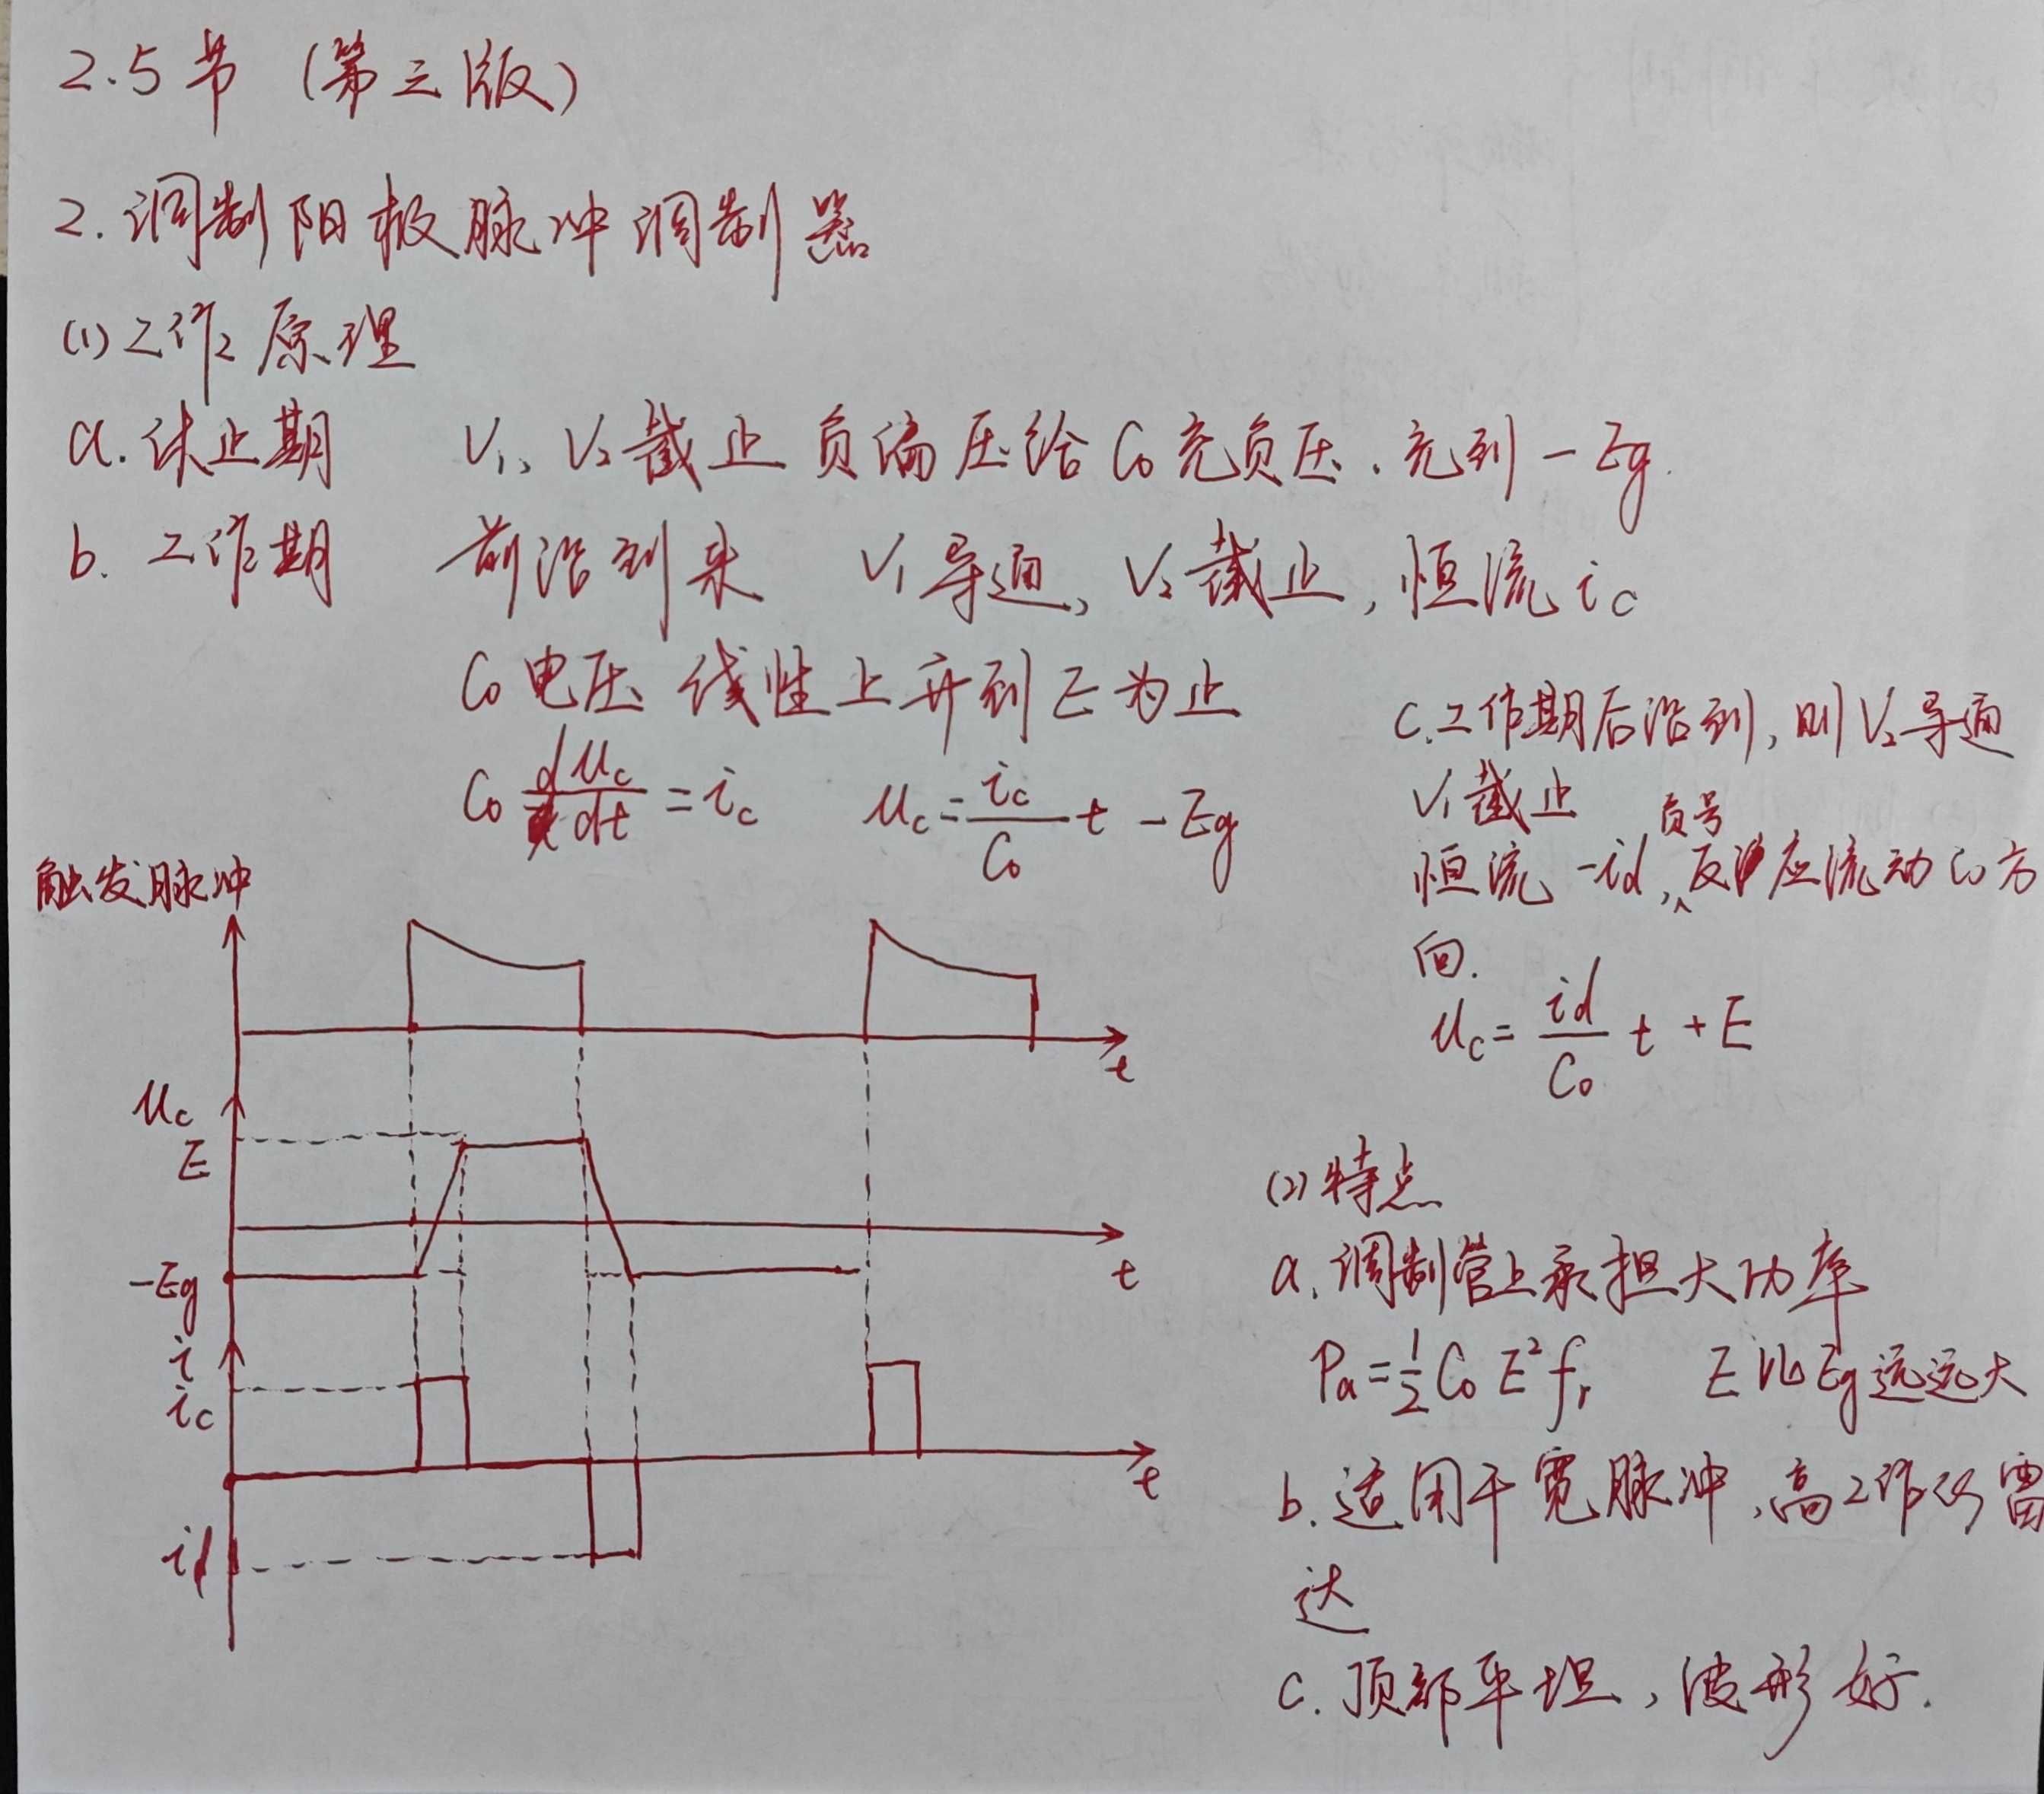 2.5节 (第三版)
2. 调制阳极脉冲调制器
(1) 工作原理
a. 休止期 V₁、V₂截止 负偏压给C₀充负压. 充到-Eg.
b. 工作期 前沿到来 V₁导通, V₂截止, 恒流 ic
C₀电压 线性上升到E为止
C₀ duc/dt = ic uc = ic/C₀ t - Eg
c. 工作期后沿到, 则V₂导通
V₁截止
负号
恒流 -id, 反应流动C₀方
向.
uc = id/C₀ t + E
触发脉冲
t
uc
E
-Eg
t
i
ic
t
id
(2) 特点
a. 调制管上承担大功率
Pa = 1/2 C₀ E² fr E比Eg远远大
b. 适用于宽脉冲, 高工作比雷
达
c. 顶部平坦, 波形好.